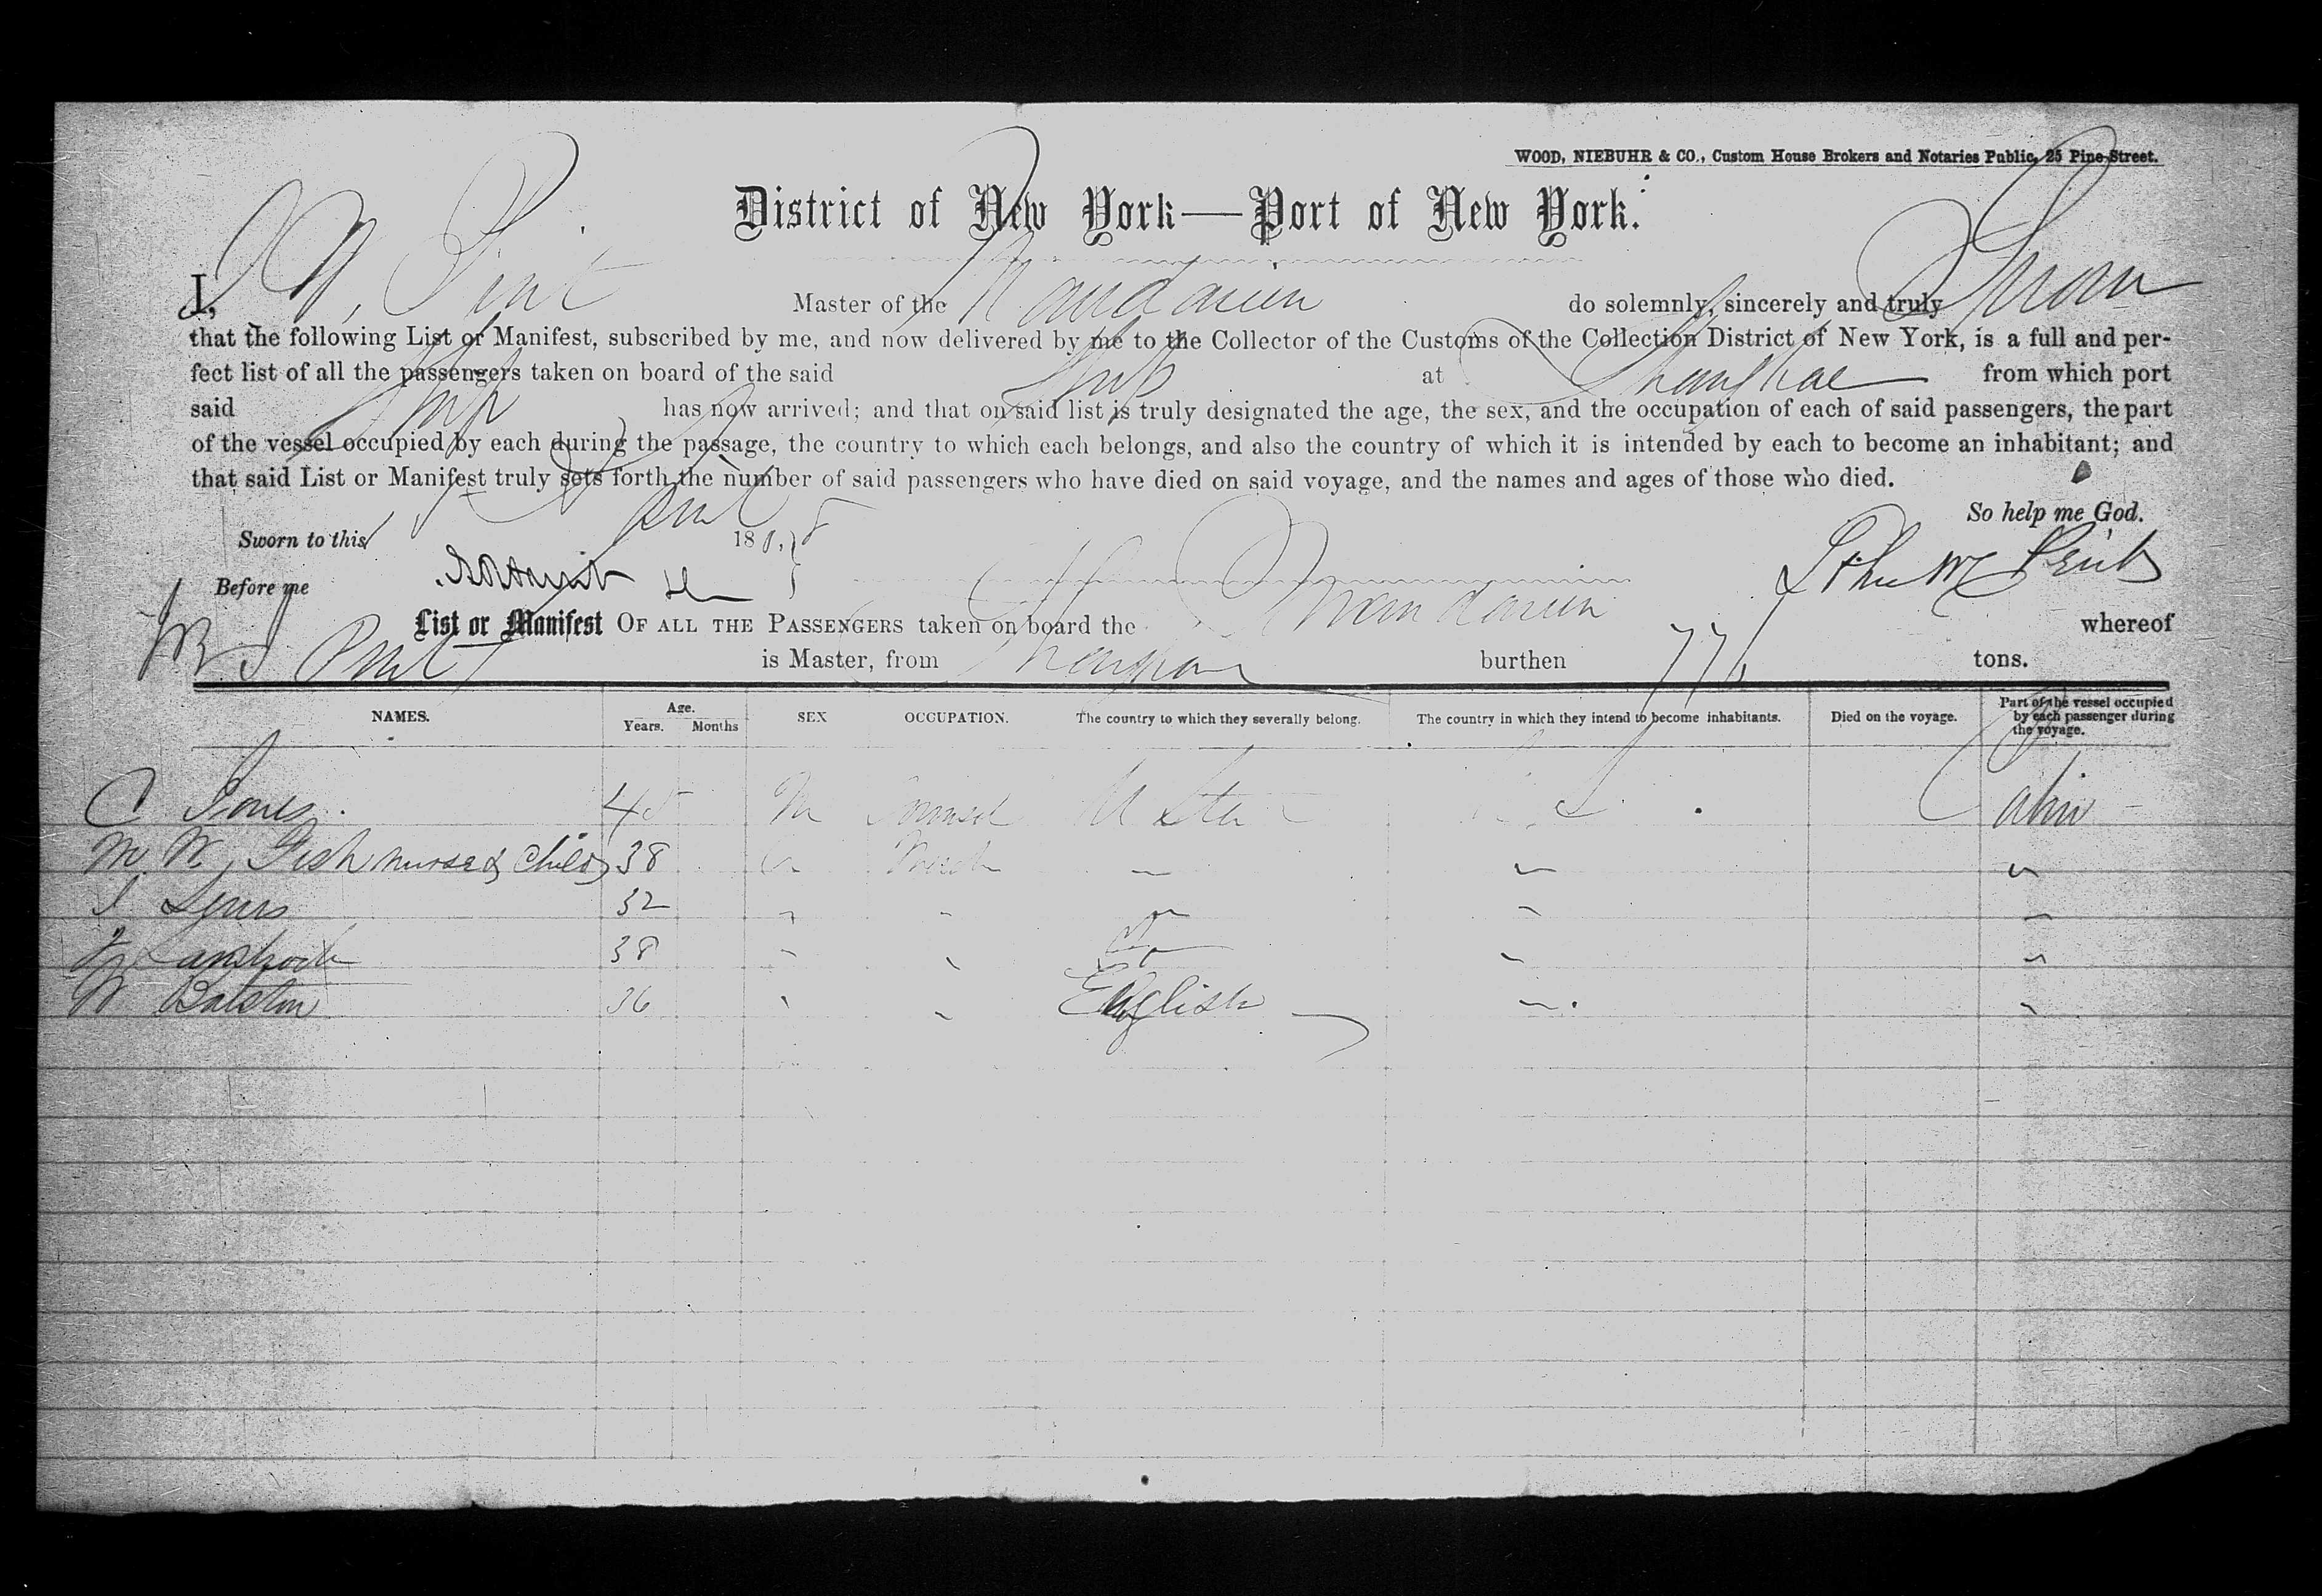 WOOD, NIEBUHR & CO., Custom House Brokers and Notaries Public, 25 Pine Street.
District of New York—Port of New York.
I, Master of the Mandarin do solemnly, sincerely and truly Swear
that the following List or Manifest, subscribed by me, and now delivered by me to the Collector of the Customs of the Collection District of New York, is a full and per-
fect list of all the passengers taken on board of the said Ship at Shanghae from which port
said Ship has now arrived; and that on said list is truly designated the age, the sex, and the occupation of each of said passengers, the part
of the vessel occupied by each during the passage, the country to which each belongs, and also the country of which it is intended by each to become an inhabitant; and
that said List or Manifest truly sets forth the number of said passengers who have died on said voyage, and the names and ages of those who died.
So help me God.
Sworn to this April 18
Before me John W
List or Manifest OF ALL THE PASSENGERS taken on board the Mandarin whereof
is Master, from burthen 776 tons.
NAMES. Age. Years. Months SEX OCCUPATION. The country to which they severally belong. The country in which they intend to become inhabitants. Died on the voyage. Part of the vessel occupied by each passenger during the voyage.
C Jones 45 M U Sta Cabin
M W Fish nurse & Child 38
Lyons 32
38
W Balston 36 English